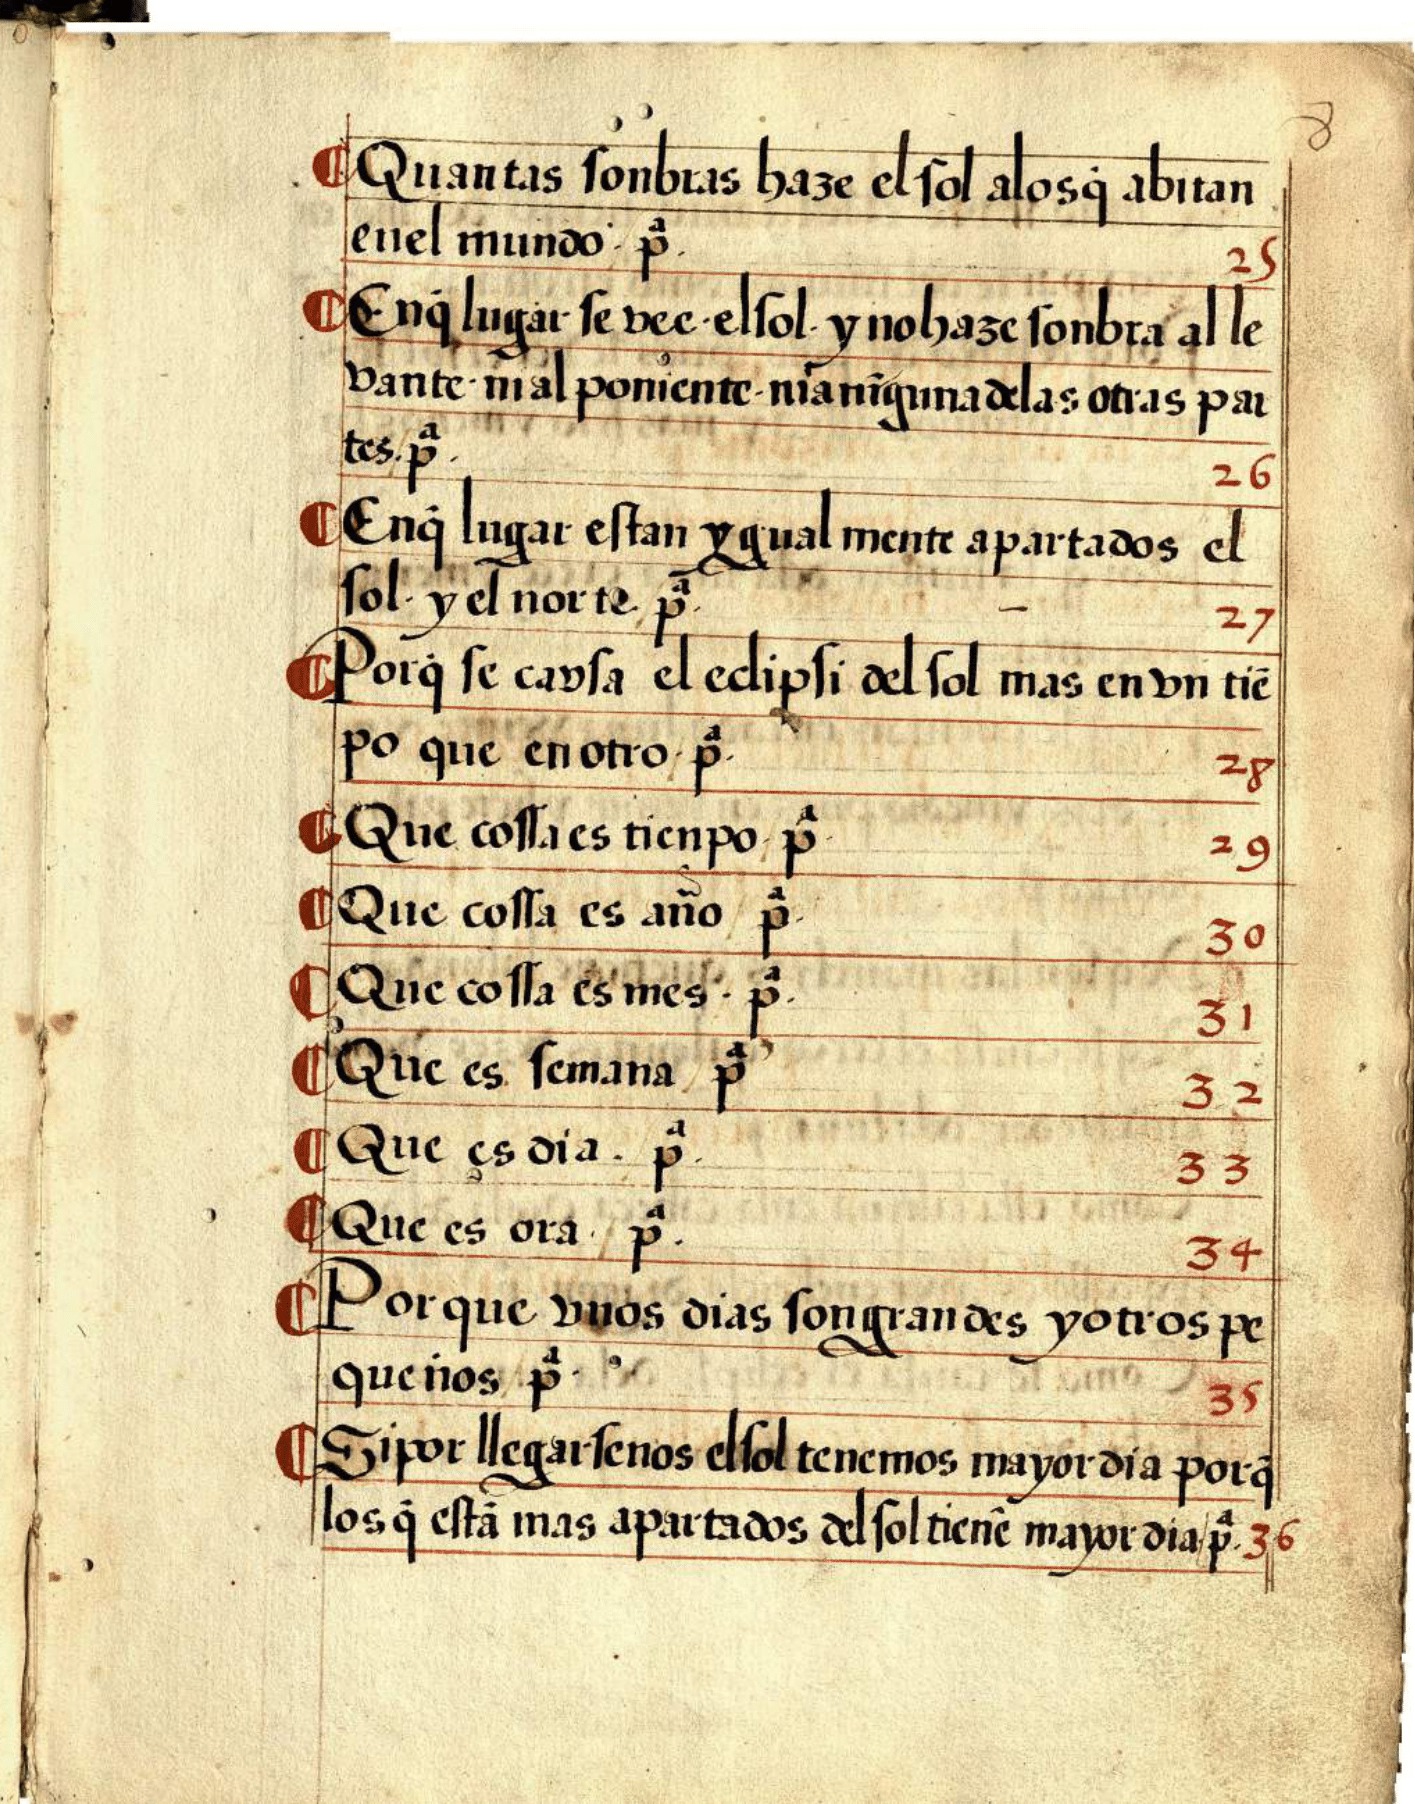 8
¶ Quantas sonbras haze el sol alosq̃ abitan
enel mundo · pª · 25
¶ Enq̃ lugar se vee · elsol · y no haze sonbra al le
vante · ni al poniente · nia ninguna delas otras par
tes. pª · 26
¶ Enq̃ lugar estan ygual mente apartados el
sol · y el norte · pª · 27
¶ Porq̃ se cavsa el eclipsi del sol mas en vn tiē
po que en otro · pª · 28
¶ Que cossa es tienpo · pª · 29
¶ Que cossa es año pª · 30
¶ Que cossa es mes · pª · 31
¶ Que es semana pª 32
¶ Que es dia · pª · 33
¶ Que es ora · pª · 34
¶ Por que vnos dias son grandes y otros pe
queños pª · 35
¶ Si por llegarsenos elsol tenemos mayor dia porq̃
los q̃ estã mas apartados del sol tienẽ mayor dia pª · 36